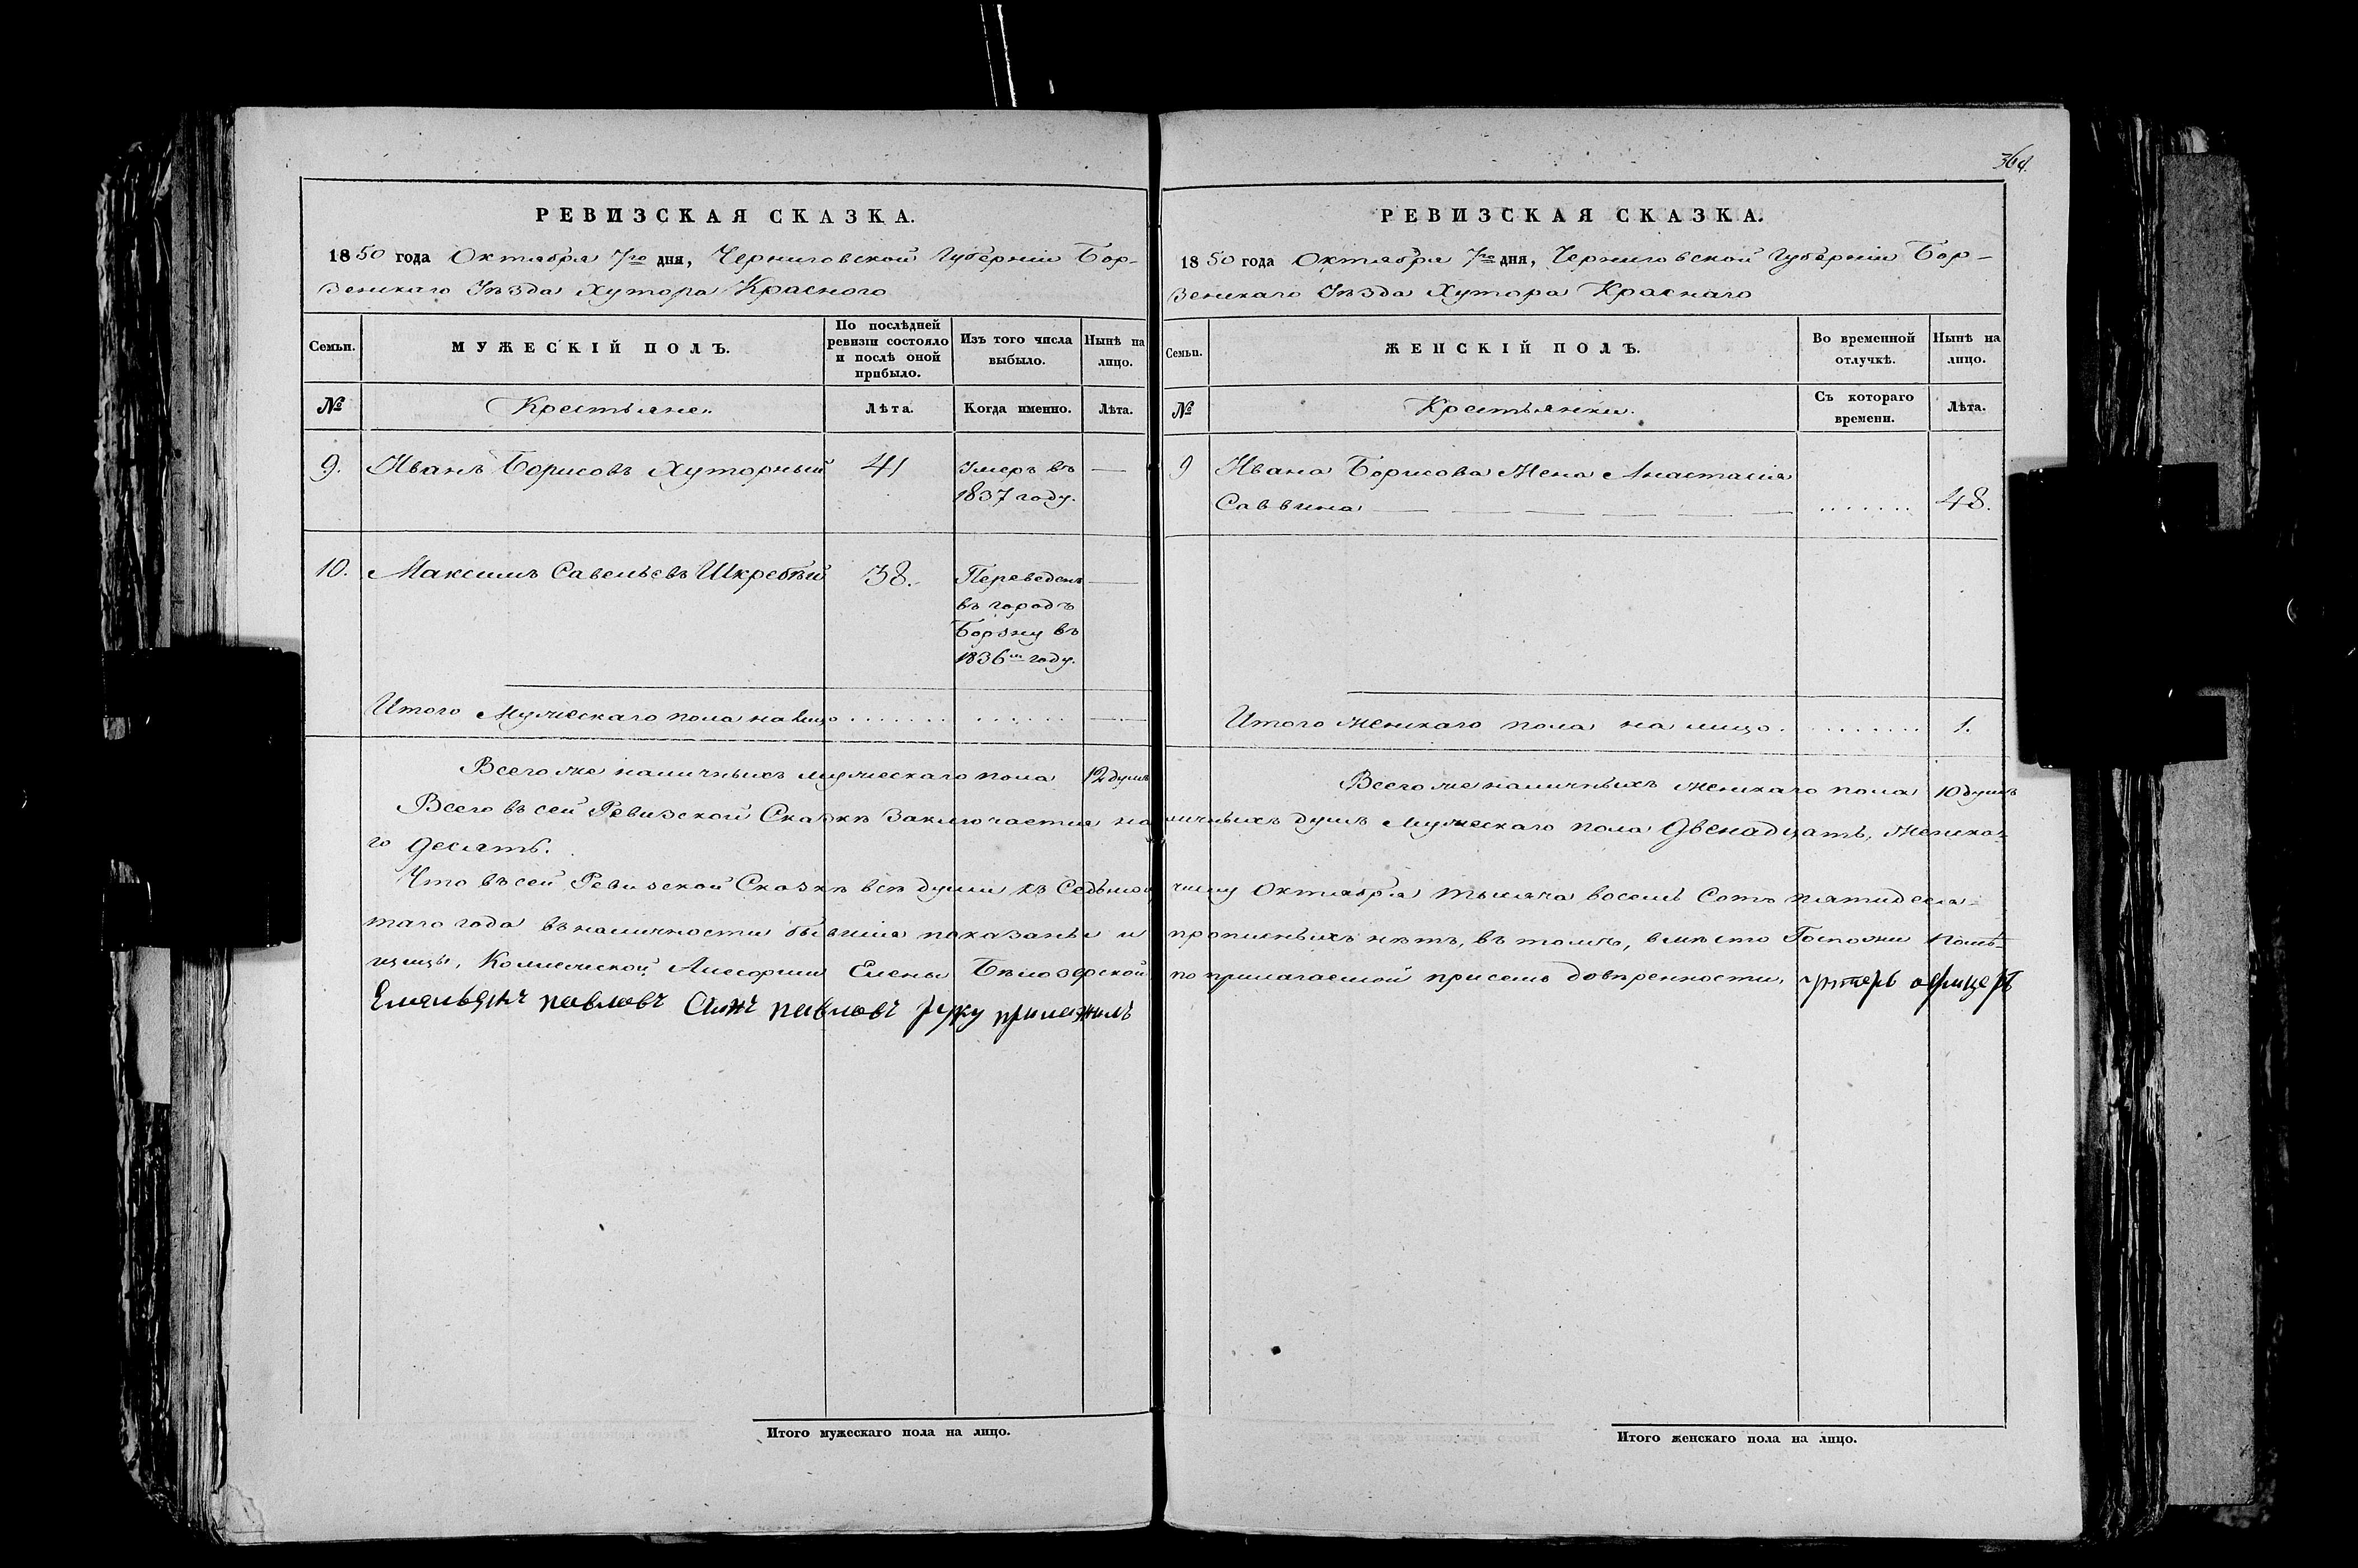 364.
РЕВИЗСКАЯ СКАЗКА.
1850 года Октября 7го дня, Черниговской Губерніи Бор-
зенскаго Уѣзда Хутора Красного
Семьи.
МУЖЕСКІЙ ПОЛЪ.
По послѣдней ревизіи состояло и послѣ оной прибыло.
Изъ того числа выбыло.
Нынѣ на лицо.
№
Крестьяне.
Лѣта.
Когда именно.
Лѣта.
9. Иванъ Борисовъ Хуторный 41 Умеръ въ —
1837 году.
10. Максимъ Савельевъ Шкребтій 38. Переведенъ —
въ городъ
Борзну въ
1836м году.
Итого Мужескаго пола на лицо . . . . . . . . . . . . . —
Всего же наличныхъ мужескаго пола 12 душъ
РЕВИЗСКАЯ СКАЗКА.
1850 года Октября 7го дня, Черниговской Губерніи Бор-
зенскаго Уѣзда Хутора Краснаго
Семьи.
ЖЕНСКІЙ ПОЛЪ.
Во временной отлучкѣ.
Нынѣ на лицо.
№
Крестьянки.
Съ котораго времени.
Лѣта.
9 Ивана Борисова Жена Анастасія
Саввина — — — — — — . . . . . . . 48.
Итого женскаго пола на лицо. . . . . . . . . 1.
Всего же наличныхъ женскаго пола 10 душъ
Всего въ сей Ревизской Сказкѣ Заключается наличныхъ душъ Мужескаго пола Двенадцать, Женска-
го десять.
Что въ сей Ревизской Сказкѣ всѣ души къ Седьмому числу Октября тысяча восемь Сотъ пятидеся-
таго года въ наличности бывшіе показаны и прописныхъ нѣтъ, въ томъ, вмѣсто Госпожи Помѣ-
щицы, Коллежской Ассесорши Елены Бѣлозерской по прилагаемой присемъ довѣренности, унтеръ офицеръ
Емельянъ павловъ Сынъ павловъ руку приложилъ
Итого мужескаго пола на лицо.
Итого женскаго пола на лицо.